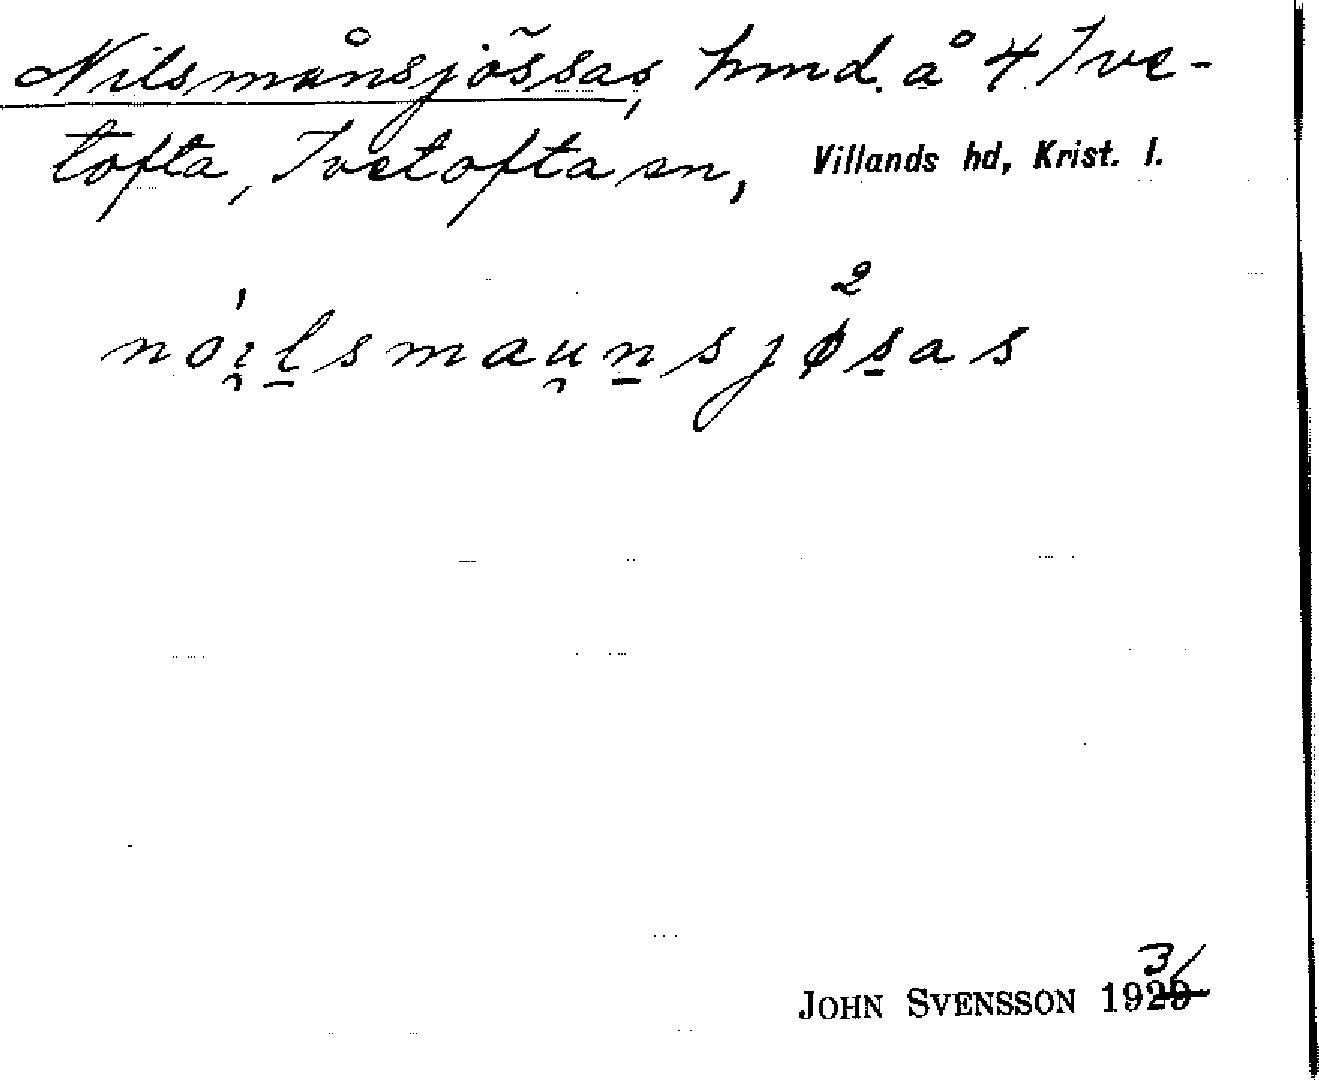 Nilsmånsjössas, hmd. å 4 Ive-
tofta, Ivetofta sn, Villands hd, Krist. l.
nói̯l̠smau̯n̠sjø²s̠as
JOHN SVENSSON 1931